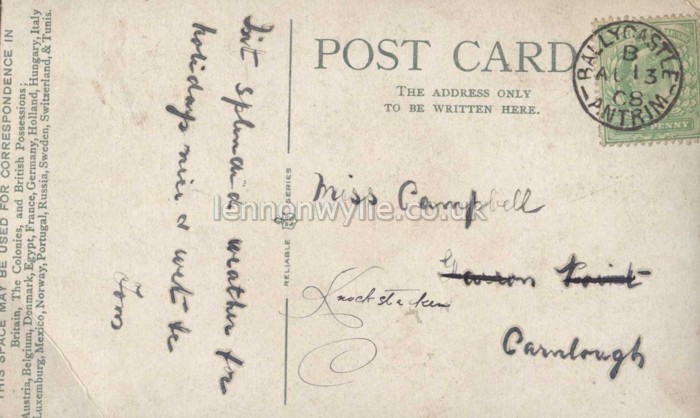 THIS SPACE MAY BE USED FOR CORRESPONDENCE IN
Britain, The Colonies, and British Possessions;
Austria, Belgium, Denmark, Egypt, France, Germany, Holland, Hungary, Italy
Luxemburg, Mexico, Norway, Portugal, Russia, Sweden, Switzerland, & Tunis.
Isn't splendid weather for
holidays nice & wet &c
Toms
POST CARD
THE ADDRESS ONLY
TO BE WRITTEN HERE.
BALLYCASTLE
B
AU 13
08
ANTRIM
PENNY
RELIABLE SERIES
Miss Campbell
lennonwylie.co.uk
Garron Point
Carnlough